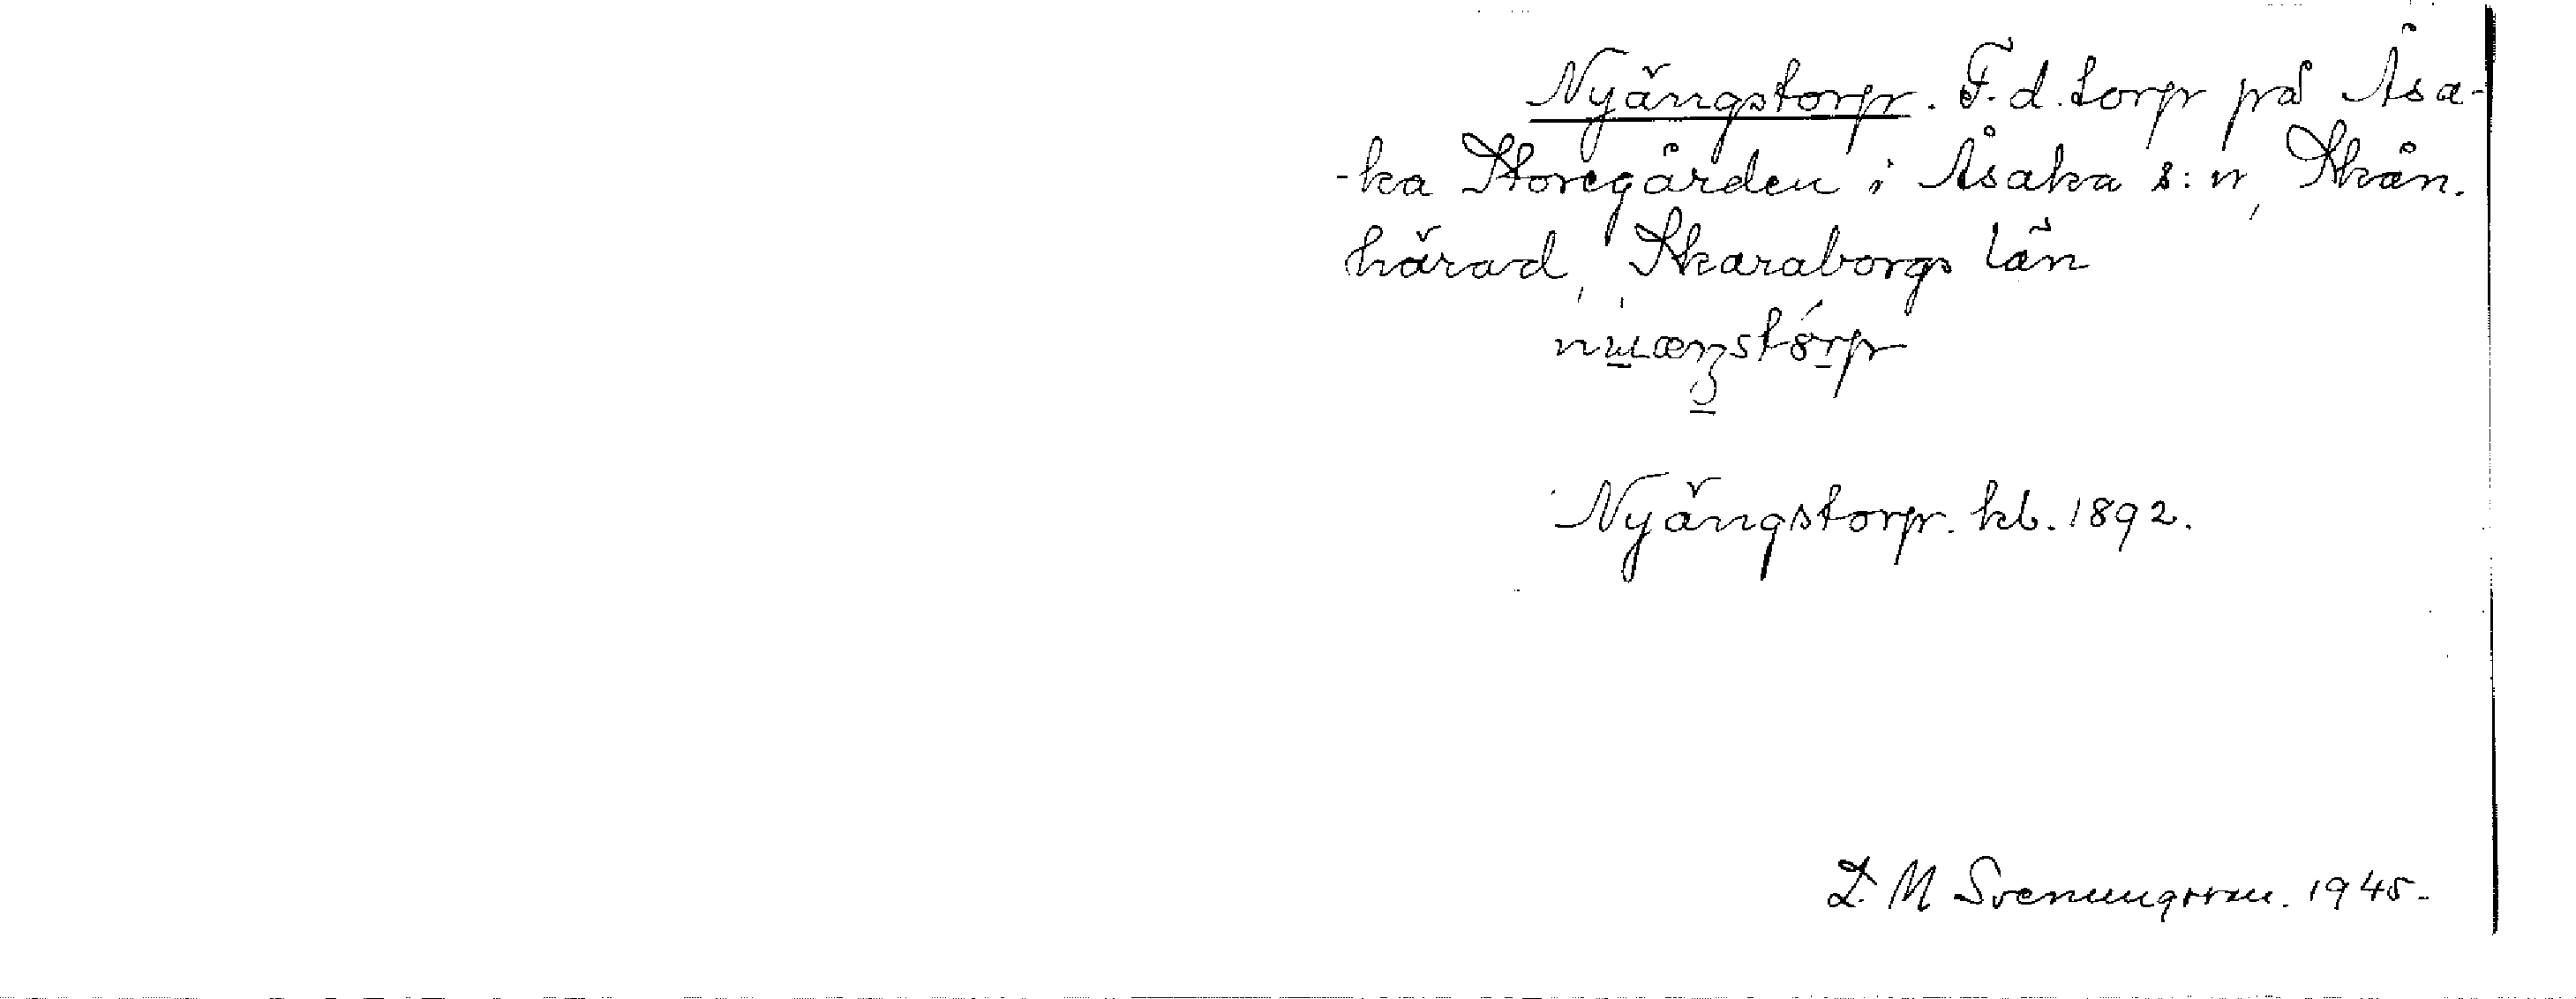 Nyängstorp. F.d. torp på Åsa-
-ka Storegården i Åsaka s:n, Skån.
härad, Skaraborgs län
Nyängstorp. kb. 1892.
D. M Svenungsson. 1945.